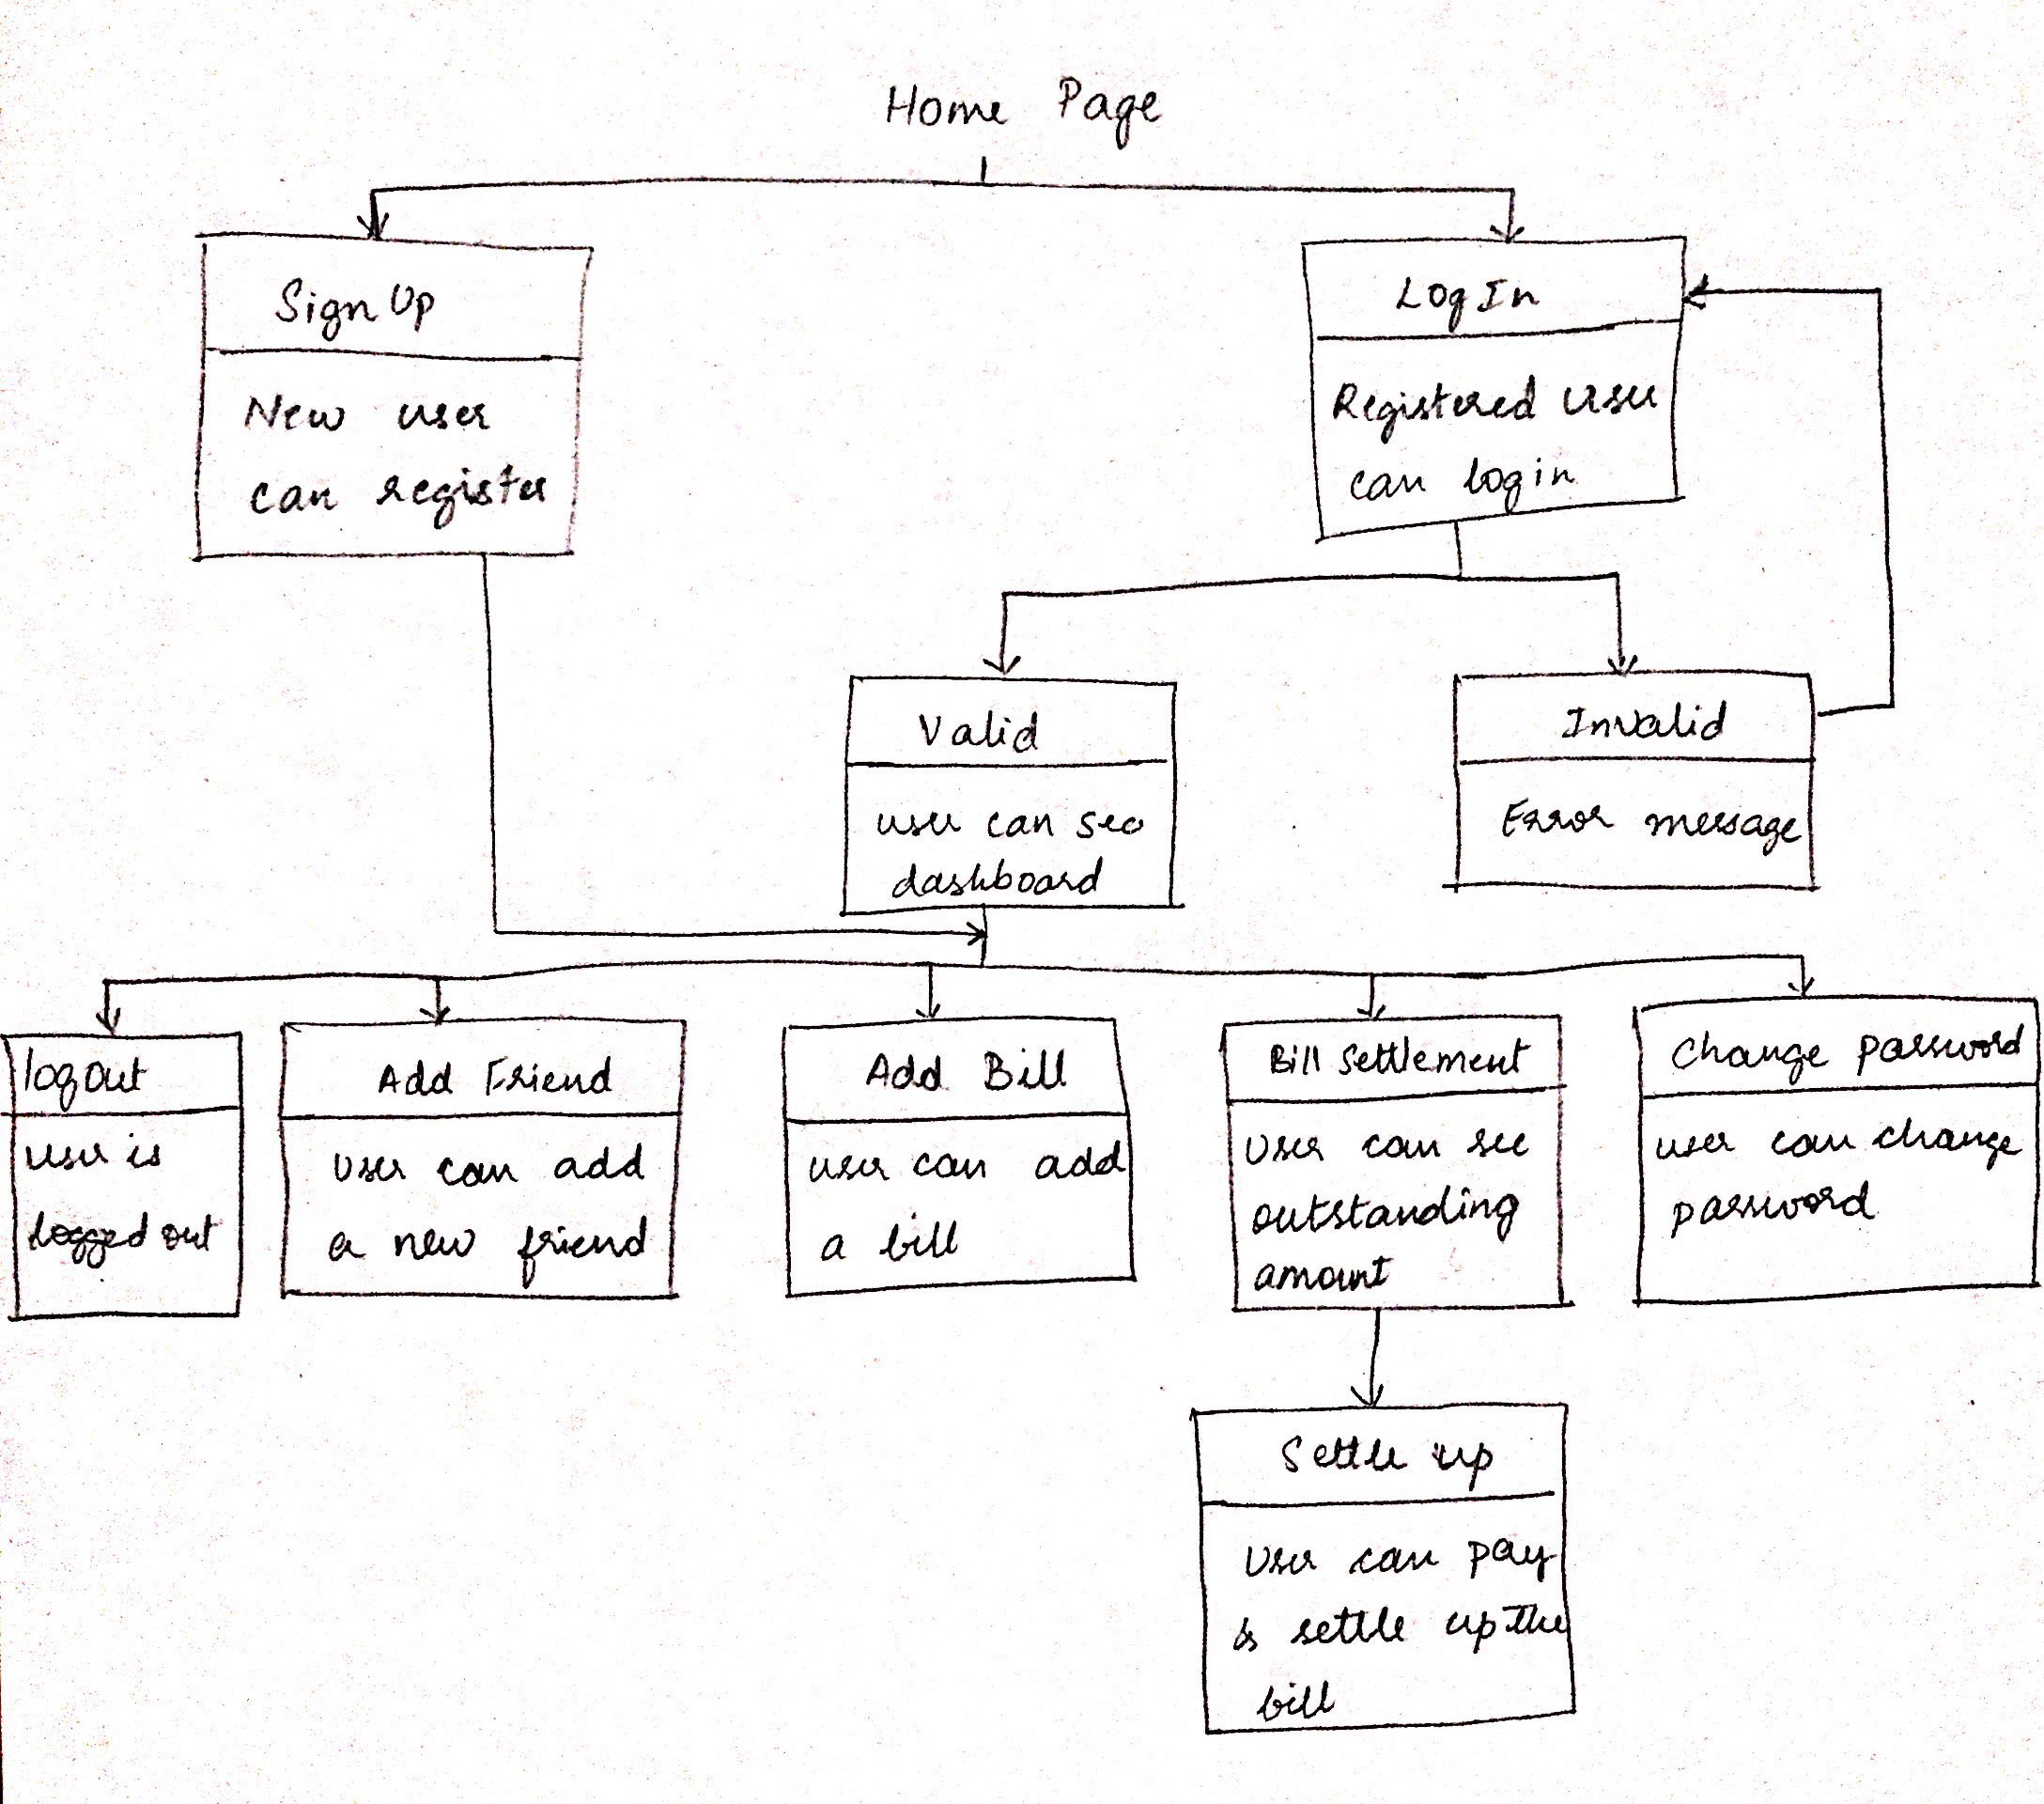 Home Page
Sign Up
New user
can register
Log In
Registered user
can login
Valid
user can see
dashboard
Invalid
Error message
logout
user is
logged out
Add Friend
User can add
a new friend
Add Bill
user can add
a bill
Bill Settlement
User can see
outstanding
amount
Change password
user can change
password
Settle up
User can pay
& settle up the
bill